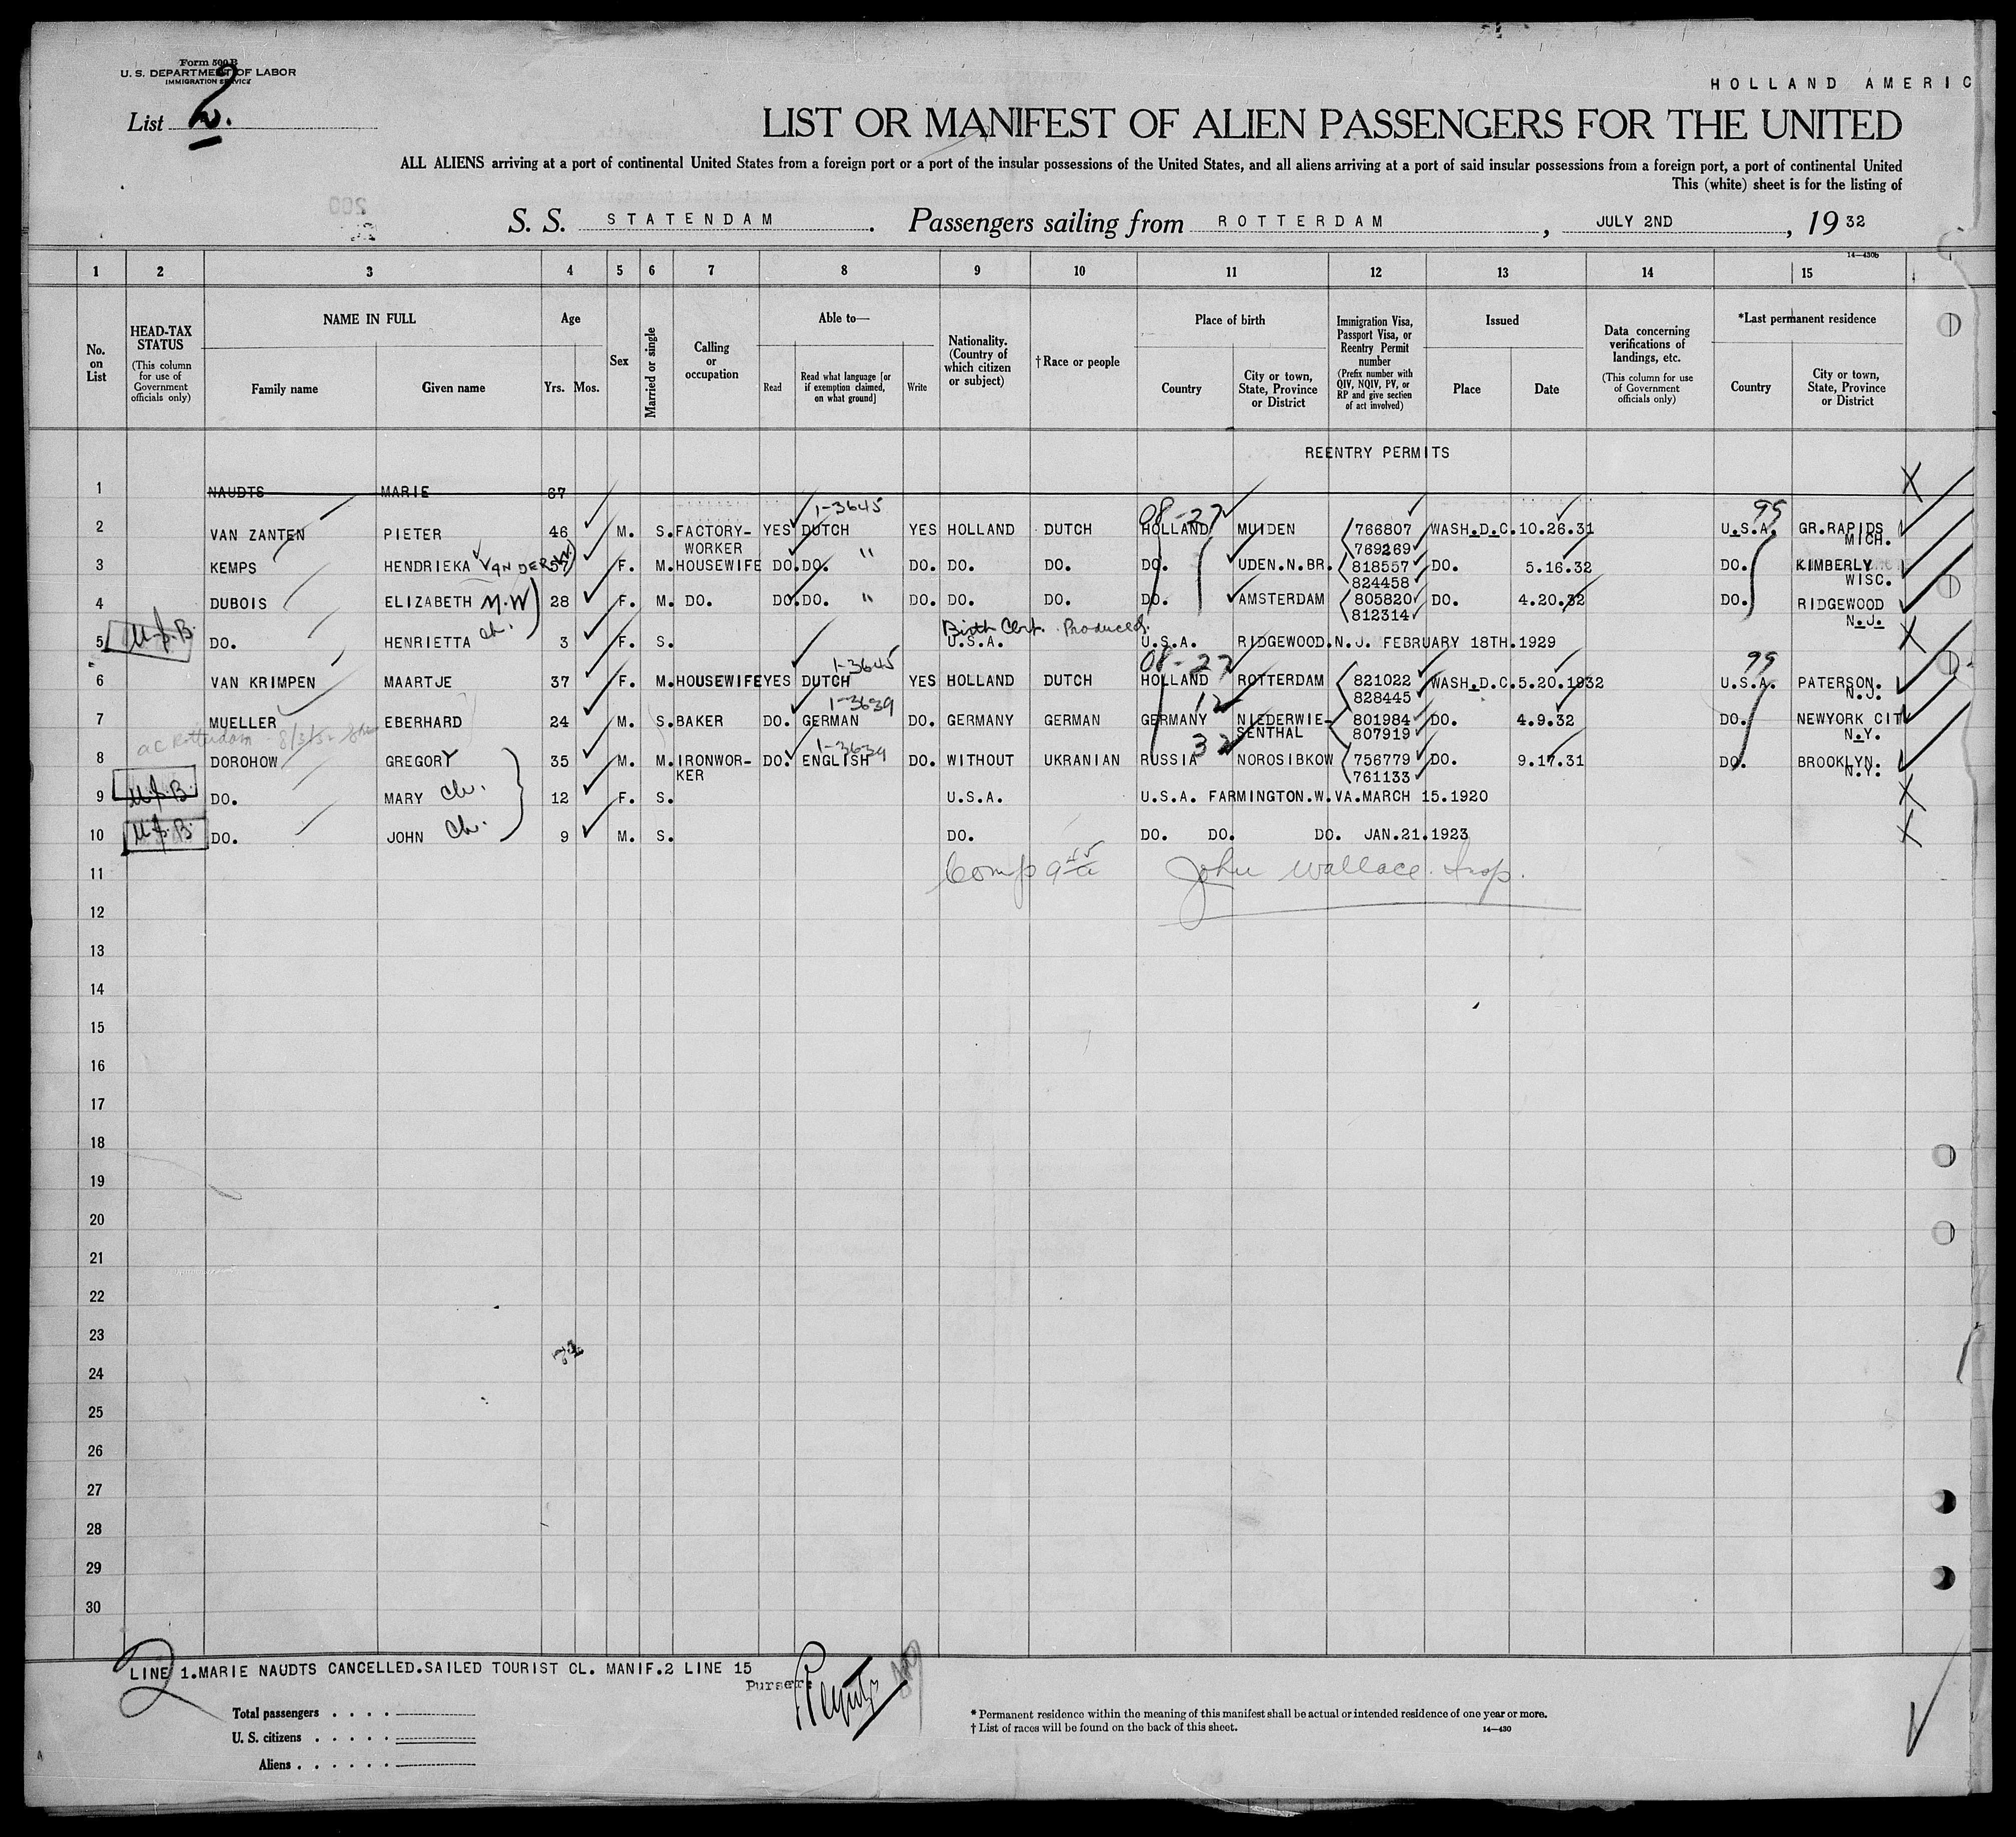 Form 500 B
U. S. DEPARTMENT OF LABOR
IMMIGRATION SERVICE
HOLLAND AMERIC
List 2.
LIST OR MANIFEST OF ALIEN PASSENGERS FOR THE UNITED
ALL ALIENS arriving at a port of continental United States from a foreign port or a port of the insular possessions of the United States, and all aliens arriving at a port of said insular possessions from a foreign port, a port of continental United
This (white) sheet is for the listing of
S. S. STATENDAM. Passengers sailing from ROTTERDAM, JULY 2ND, 19 32
14—430b
1 2 3 4 5 6 7 8 9 10 11 12 13 14 15
No. on List
HEAD-TAX STATUS
(This column for use of Government officials only)
NAME IN FULL
Family name Given name
Age
Yrs. Mos.
Sex
Married or single
Calling or occupation
Able to—
Read Read what language [or if exemption claimed, on what ground] Write
Nationality. (Country of which citizen or subject)
†Race or people
Place of birth
Country City or town, State, Province or District
Immigration Visa, Passport Visa, or Reentry Permit number
(Prefix number with QIV, NQIV, PV, or RP and give section of act involved)
Issued
Place Date
Data concerning verifications of landings, etc.
(This column for use of Government officials only)
*Last permanent residence
Country City or town, State, Province or District
REENTRY PERMITS
1 NAUDTS MARIE 67
1-3645 08-27 99
2 VAN ZANTEN PIETER 46 M. S. FACTORY- YES DUTCH YES HOLLAND DUTCH HOLLAND MUIDEN 766807 WASH.D.C. 10.26.31 U.S.A. GR.RAPIDS
WORKER 769269 MICH.
3 KEMPS HENDRIEKA VAN DER 57 F. M. HOUSEWIFE DO. DO. " DO. DO. DO. DO. UDEN.N.BR. 818557 DO. 5.16.32 DO. KIMBERLY
824458 WISC.
4 DUBOIS ELIZABETH M.W 28 F. M. DO. DO. DO. " DO. DO. DO. DO. AMSTERDAM 805820 DO. 4.20.32 DO. RIDGEWOOD
812314 N.J.
Birth Cert. Produced.
5 U.S.B. DO. HENRIETTA ch. 3 F. S. U.S.A. U.S.A. RIDGEWOOD.N.J. FEBRUARY 18TH.1929
1-3645 08-27 99
6 VAN KRIMPEN MAARTJE 37 F. M. HOUSEWIFE YES DUTCH YES HOLLAND DUTCH HOLLAND ROTTERDAM 821022 WASH.D.C. 5.20.1932 U.S.A. PATERSON.
828445 N.J.
1-3639 12
7 MUELLER EBERHARD 24 M. S. BAKER DO. GERMAN DO. GERMANY GERMAN GERMANY NIEDERWIE- 801984 DO. 4.9.32 DO. NEWYORK CIT
SENTHAL 807919 N.Y.
1-3639 32
8 DOROHOW GREGORY 35 M. M. IRONWOR- DO. ENGLISH DO. WITHOUT UKRANIAN RUSSIA NOROSIBKOW 756779 DO. 9.17.31 DO. BROOKLYN.
KER 761133 N.Y.
9 U.S.B. DO. MARY ch. 12 F. S. U.S.A. U.S.A. FARMINGTON.W.VA.MARCH 15.1920
10 U.S.B. DO. JOHN ch. 9 M. S. DO. DO. DO. DO. JAN.21.1923
11 Comp 9 45 a John Wallace. Insp.
12
13
14
15
16
17
18
19
20
21
22
23
24
25
26
27
28
29
30
2
LINE 1.MARIE NAUDTS CANCELLED.SAILED TOURIST CL. MANIF.2 LINE 15
Purser:
Total passengers
U. S. citizens
Aliens
* Permanent residence within the meaning of this manifest shall be actual or intended residence of one year or more.
† List of races will be found on the back of this sheet.
14—430